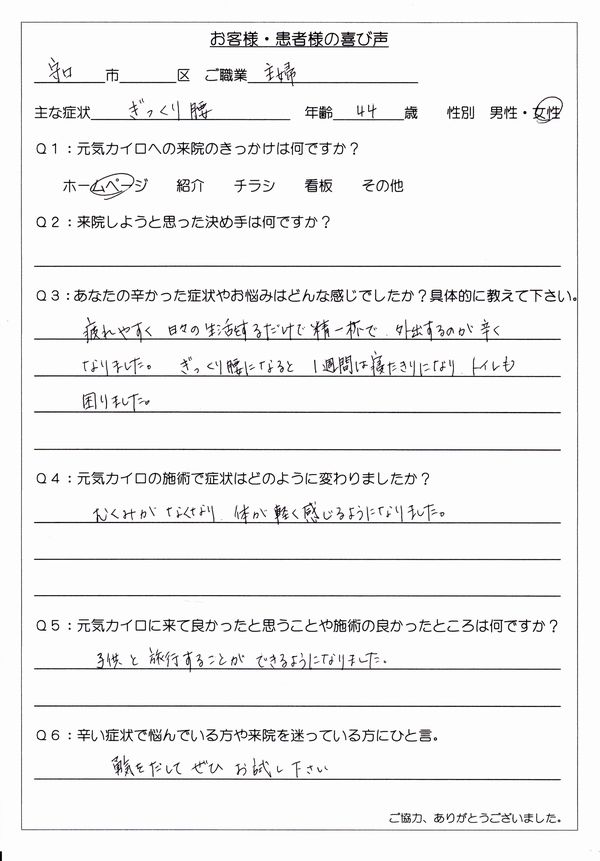 お客様・患者様の喜び声
守口 市 区 ご職業 主婦
主な症状 ぎっくり腰 年齢 44 歳 性別 男性・女性
Q1：元気カイロへの来院のきっかけは何ですか？
ホームページ 紹介 チラシ 看板 その他
Q2：来院しようと思った決め手は何ですか？
Q3：あなたの辛かった症状やお悩みはどんな感じでしたか？具体的に教えて下さい。
疲れやすく 日々の生活するだけで精一杯で、外出するのが辛く
なりました。 ぎっくり腰になると 1週間は寝たきりになり、トイレも
困りました。
Q4：元気カイロの施術で症状はどのように変わりましたか？
むくみが なくなり、体が軽く感じるようになりました。
Q5：元気カイロに来て良かったと思うことや施術の良かったところは何ですか？
子供と旅行することが できるようになりました。
Q6：辛い症状で悩んでいる方や来院を迷っている方にひと言。
勇気をだして ぜひ お試し下さい
ご協力、ありがとうございました。